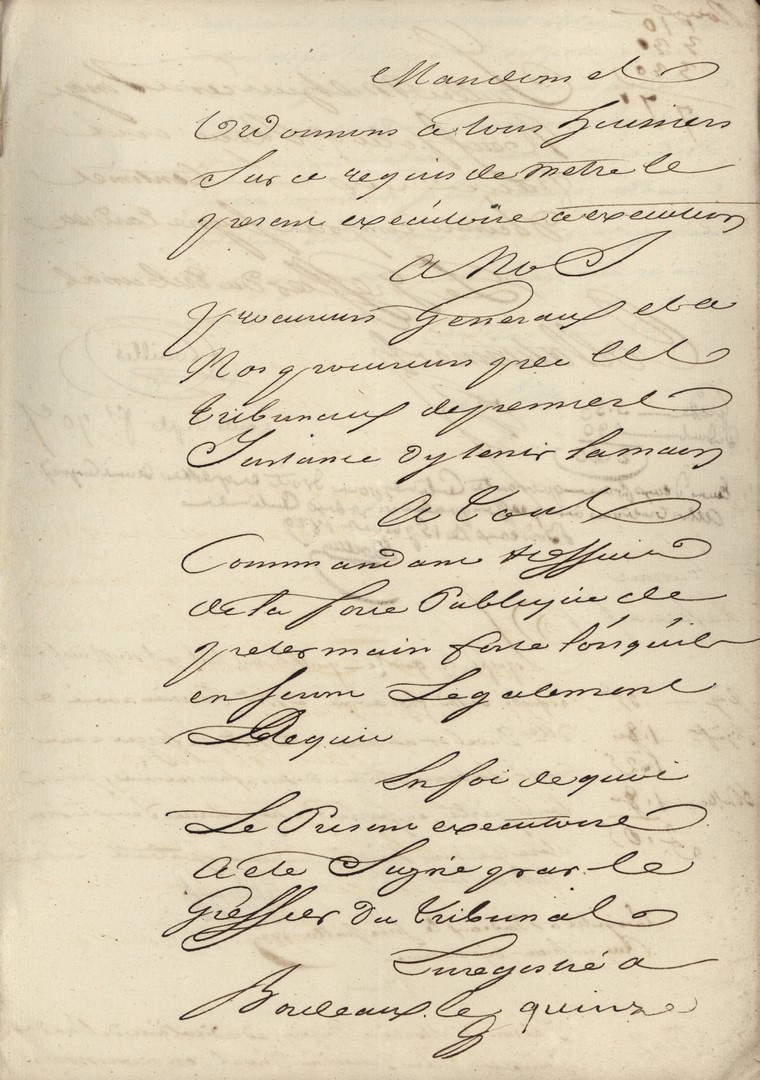 Mandons et
Ordonnons a tous huissiers
Sur ce requis de metre le
present exécutoire a execution
A Nos
procureurs Generaux et a
Nos procureurs près les
tribunaux de premiere
Instance d'y tenir la main
A tous
Commandans et officiers
de la force Publique de
preter main forte lorsqu'ils
en seront Legalement
Requis
En foi de quoi
Le Present executoire
a ete Signé par le
Greffier du tribunal
Enregistré a
Bordeaux le quinze